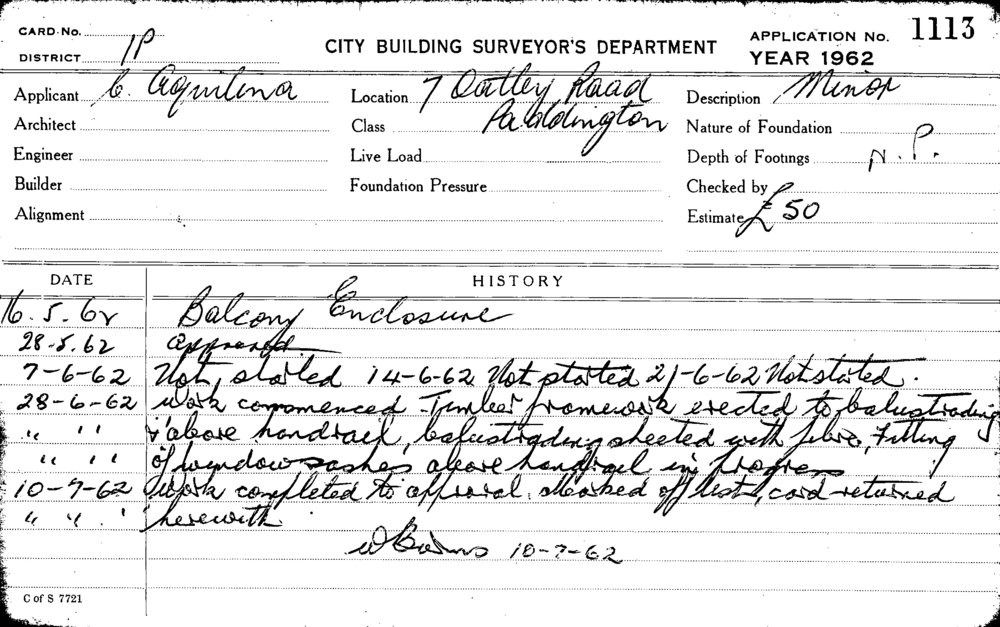 CARD No.
DISTRICT 1P
CITY BUILDING SURVEYOR'S DEPARTMENT
APPLICATION No. 1113
YEAR 1962
Applicant C. Aquilina
Location 7 Oatley Road
Paddington
Description Minor
Architect
Class
Nature of Foundation
Engineer
Live Load
Depth of Footings N.P.
Builder
Foundation Pressure
Checked by
Alignment
Estimate £50
DATE HISTORY
16.5.62 Balcony Enclosure
28-5.62 approved
7-6-62 Not started 14-6-62 Not started 21-6-62 Not started.
28-6-62 work commenced. Timber framework erected to balustrading
" " " & above handrail, balustrading sheeted with fibro. Fitting
" " " of window sashes above handrail in progress
10-7-62 Work completed to approval. Marked off list, card returned
" " " herewith.
W Burns 10-7-62
C of S 7721